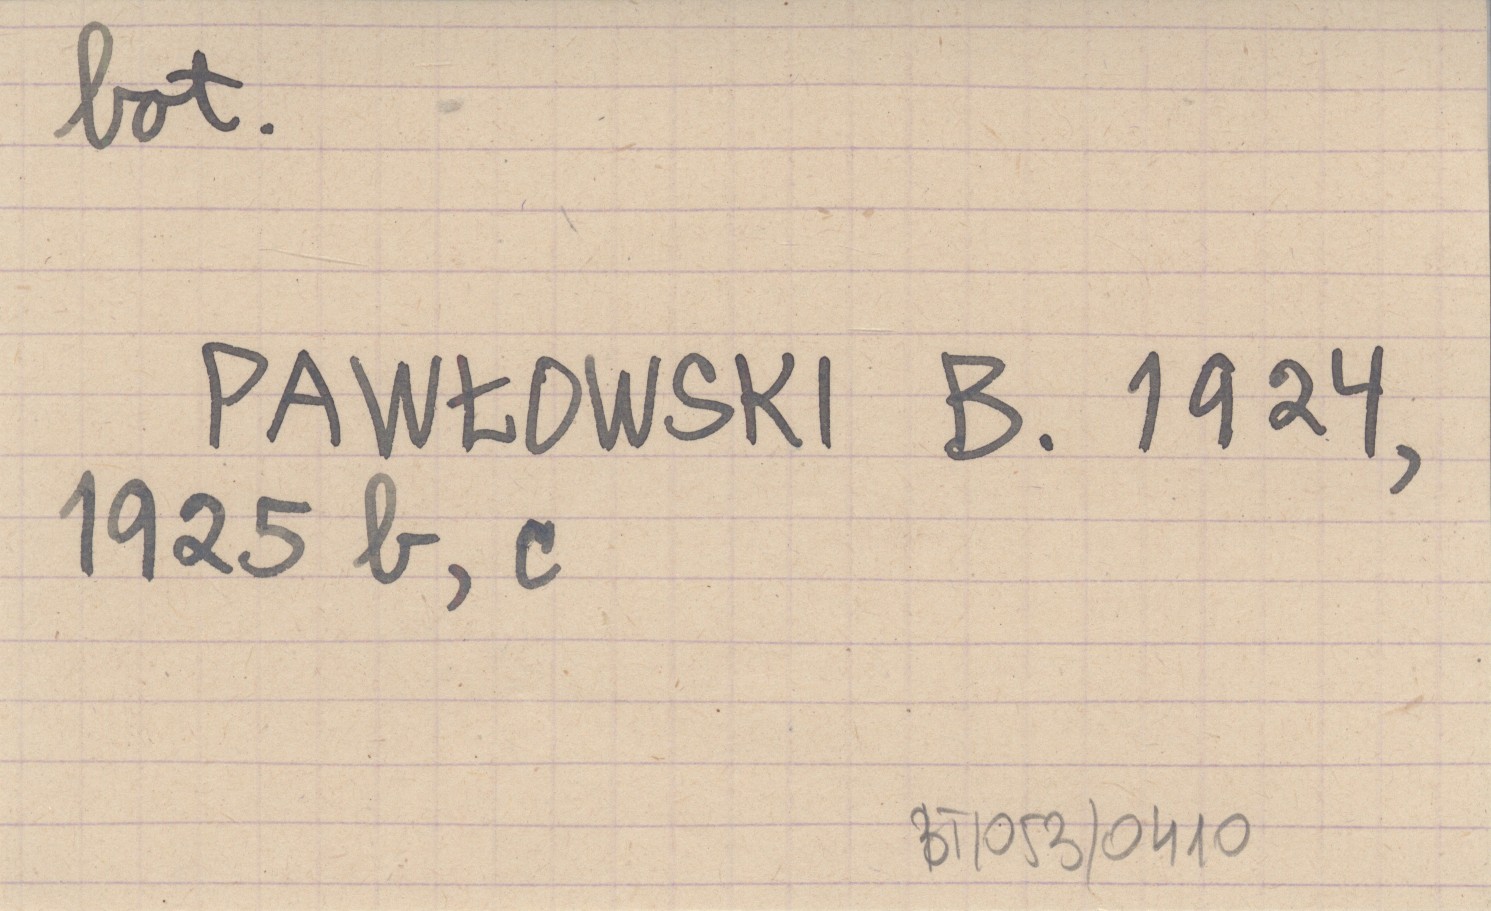 bot.
PAWŁOWSKI B. 1924,
1925 b, c
BT/053/0410